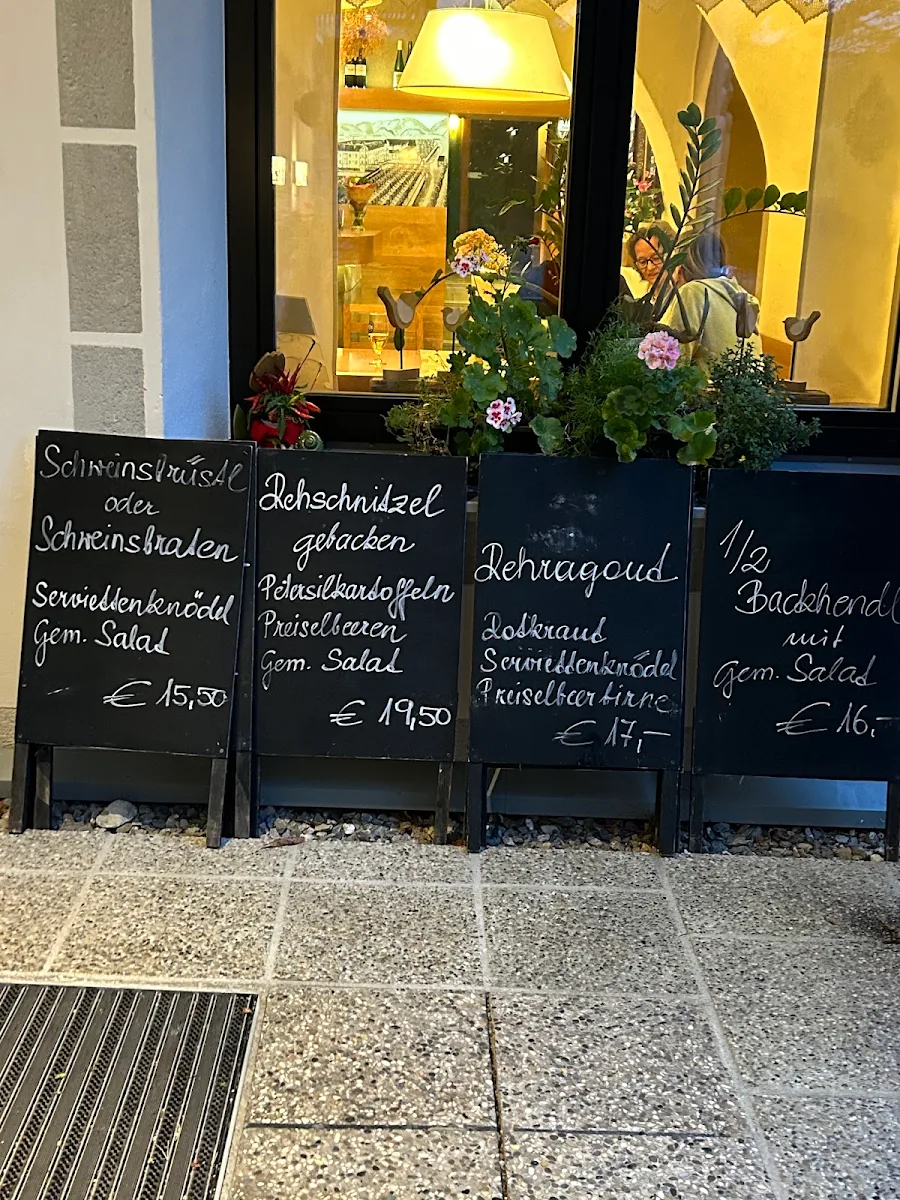 Schweinsbrüstl
oder
Schweinsbraten
Serviettenknödel
Gem. Salat
€ 15,50
Rehschnitzel
gebacken
Petersilkartoffeln
Preiselbeeren
Gem. Salat
€ 19,50
Rehragout
Rotkraut
Serviettenknödel
Preiselbeerbirne
€ 17,—
1/2
Backhendl
mit
Gem. Salat
€ 16,—